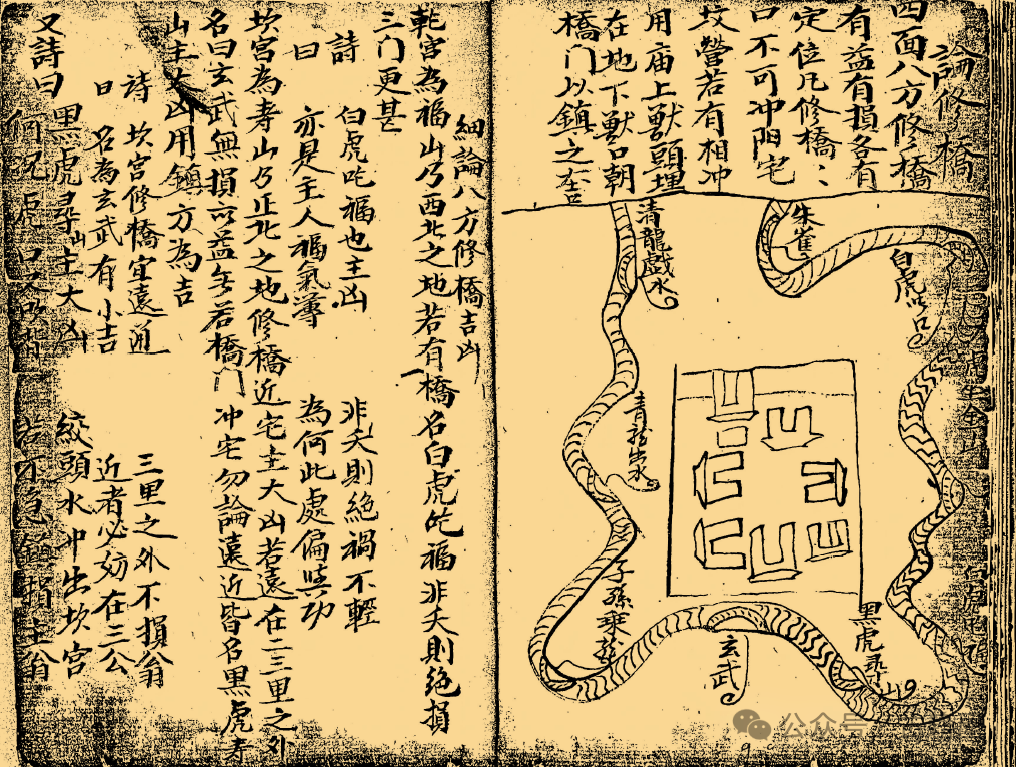 論修橋
四面八方修橋
有益有損各有
定位凡修橋:
口不可冲阳宅
坟營若有相冲
用庙上獸頭埋
在地下獸口朝
橋门以鎮之吉
朱雀
清龍戲水
白虎
青龍出水
子孫乘龍
玄武
黑虎尋山
細論八方修橋吉凶
乾宮為福山乃西北之地若有橋名白虎吃福非夭則絶損
三门更甚
詩 白虎吃福也主凶 非夭則絶禍不輕
曰 亦是主人福氣薄 為何此處偏興功
坎宮為寿山乃正北之地修橋近宅主大凶若遠在二三里之外
名曰玄武無損亦益無若橋门冲宅勿論遠近皆名黑虎寻
山主大凶用鎮方為吉
詩 坎宮修橋宜遠通 三里之外不損翁
曰 名為玄武有小吉 近者必妨在三公
又詩曰 黑虎尋山主大凶 絞頭水冲出坎宮
何況虎口 損主翁
公众号